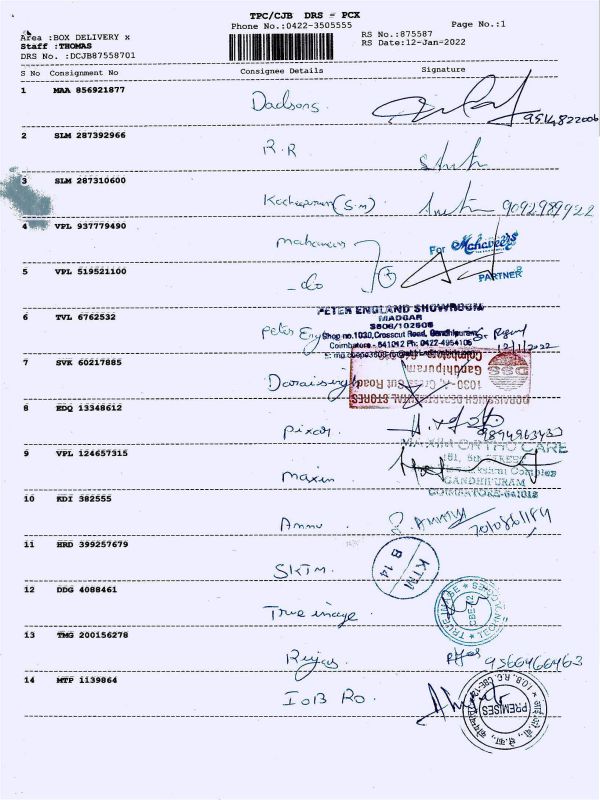 TPC/CJB DRS - PCX
Phone No.:0422-3505555
Page No.:1
Area :BOX DELIVERY x
Staff :THOMAS
DRS No. :DCJB87558701
RS No.:875587
RS Date:12-Jan-2022
S No Consignment No Consignee Details Signature
1 MAA 856921877 Dadsons 9514822006
2 SLM 287392966 R.R
3 SLM 287310600 (S.M) 9092989922
4 VPL 937779490 mahaveers
For Mahaveers
PARTNER
5 VPL 519521100 -do
6 TVL 6762532 Peter Eng
PETER ENGLAND SHOWROOM
MADGAR
Shop no.1030,Crosscut Road, Gandhipuram
Coimbatore - 641012 Ph: 0422-4954105
12/1/2022
7 SVK 60217885 Doraisingh
DSS
DORAISINGH DEPARTMENTAL STORES
1030-, Cross Cut Road
Gandhipuram
8 EDQ 13348612 pixar
9 VPL 124657315 maxin
MAXIN ORTHO CARE
GANDHIPURAM
COIMBATORE-641012
10 KDI 382555 Ammu
11 HRD 399257679 SKTM.
KTM
B 14
12 DDG 4088461 True image
TRUE IMAGE
CBE-12
13 TMG 200156278 9566466463
14 MTP 1139864 IOB RO.
I.O.B. R.O. CBE-12
PREMISES